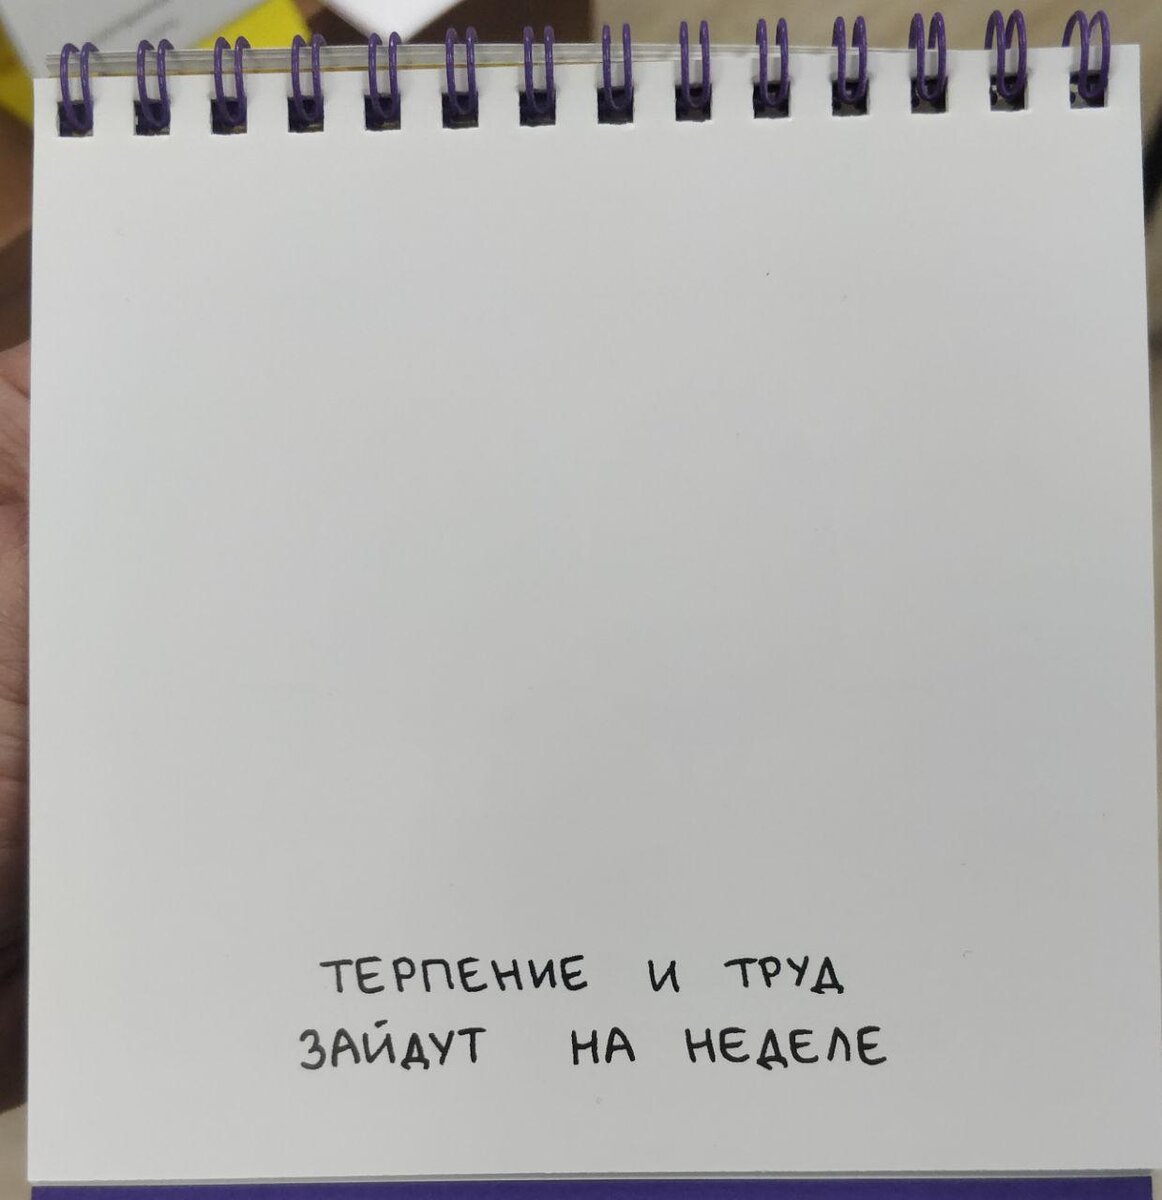 ТЕРПЕНИЕ И ТРУД
ЗАЙДУТ НА НЕДЕЛЕ